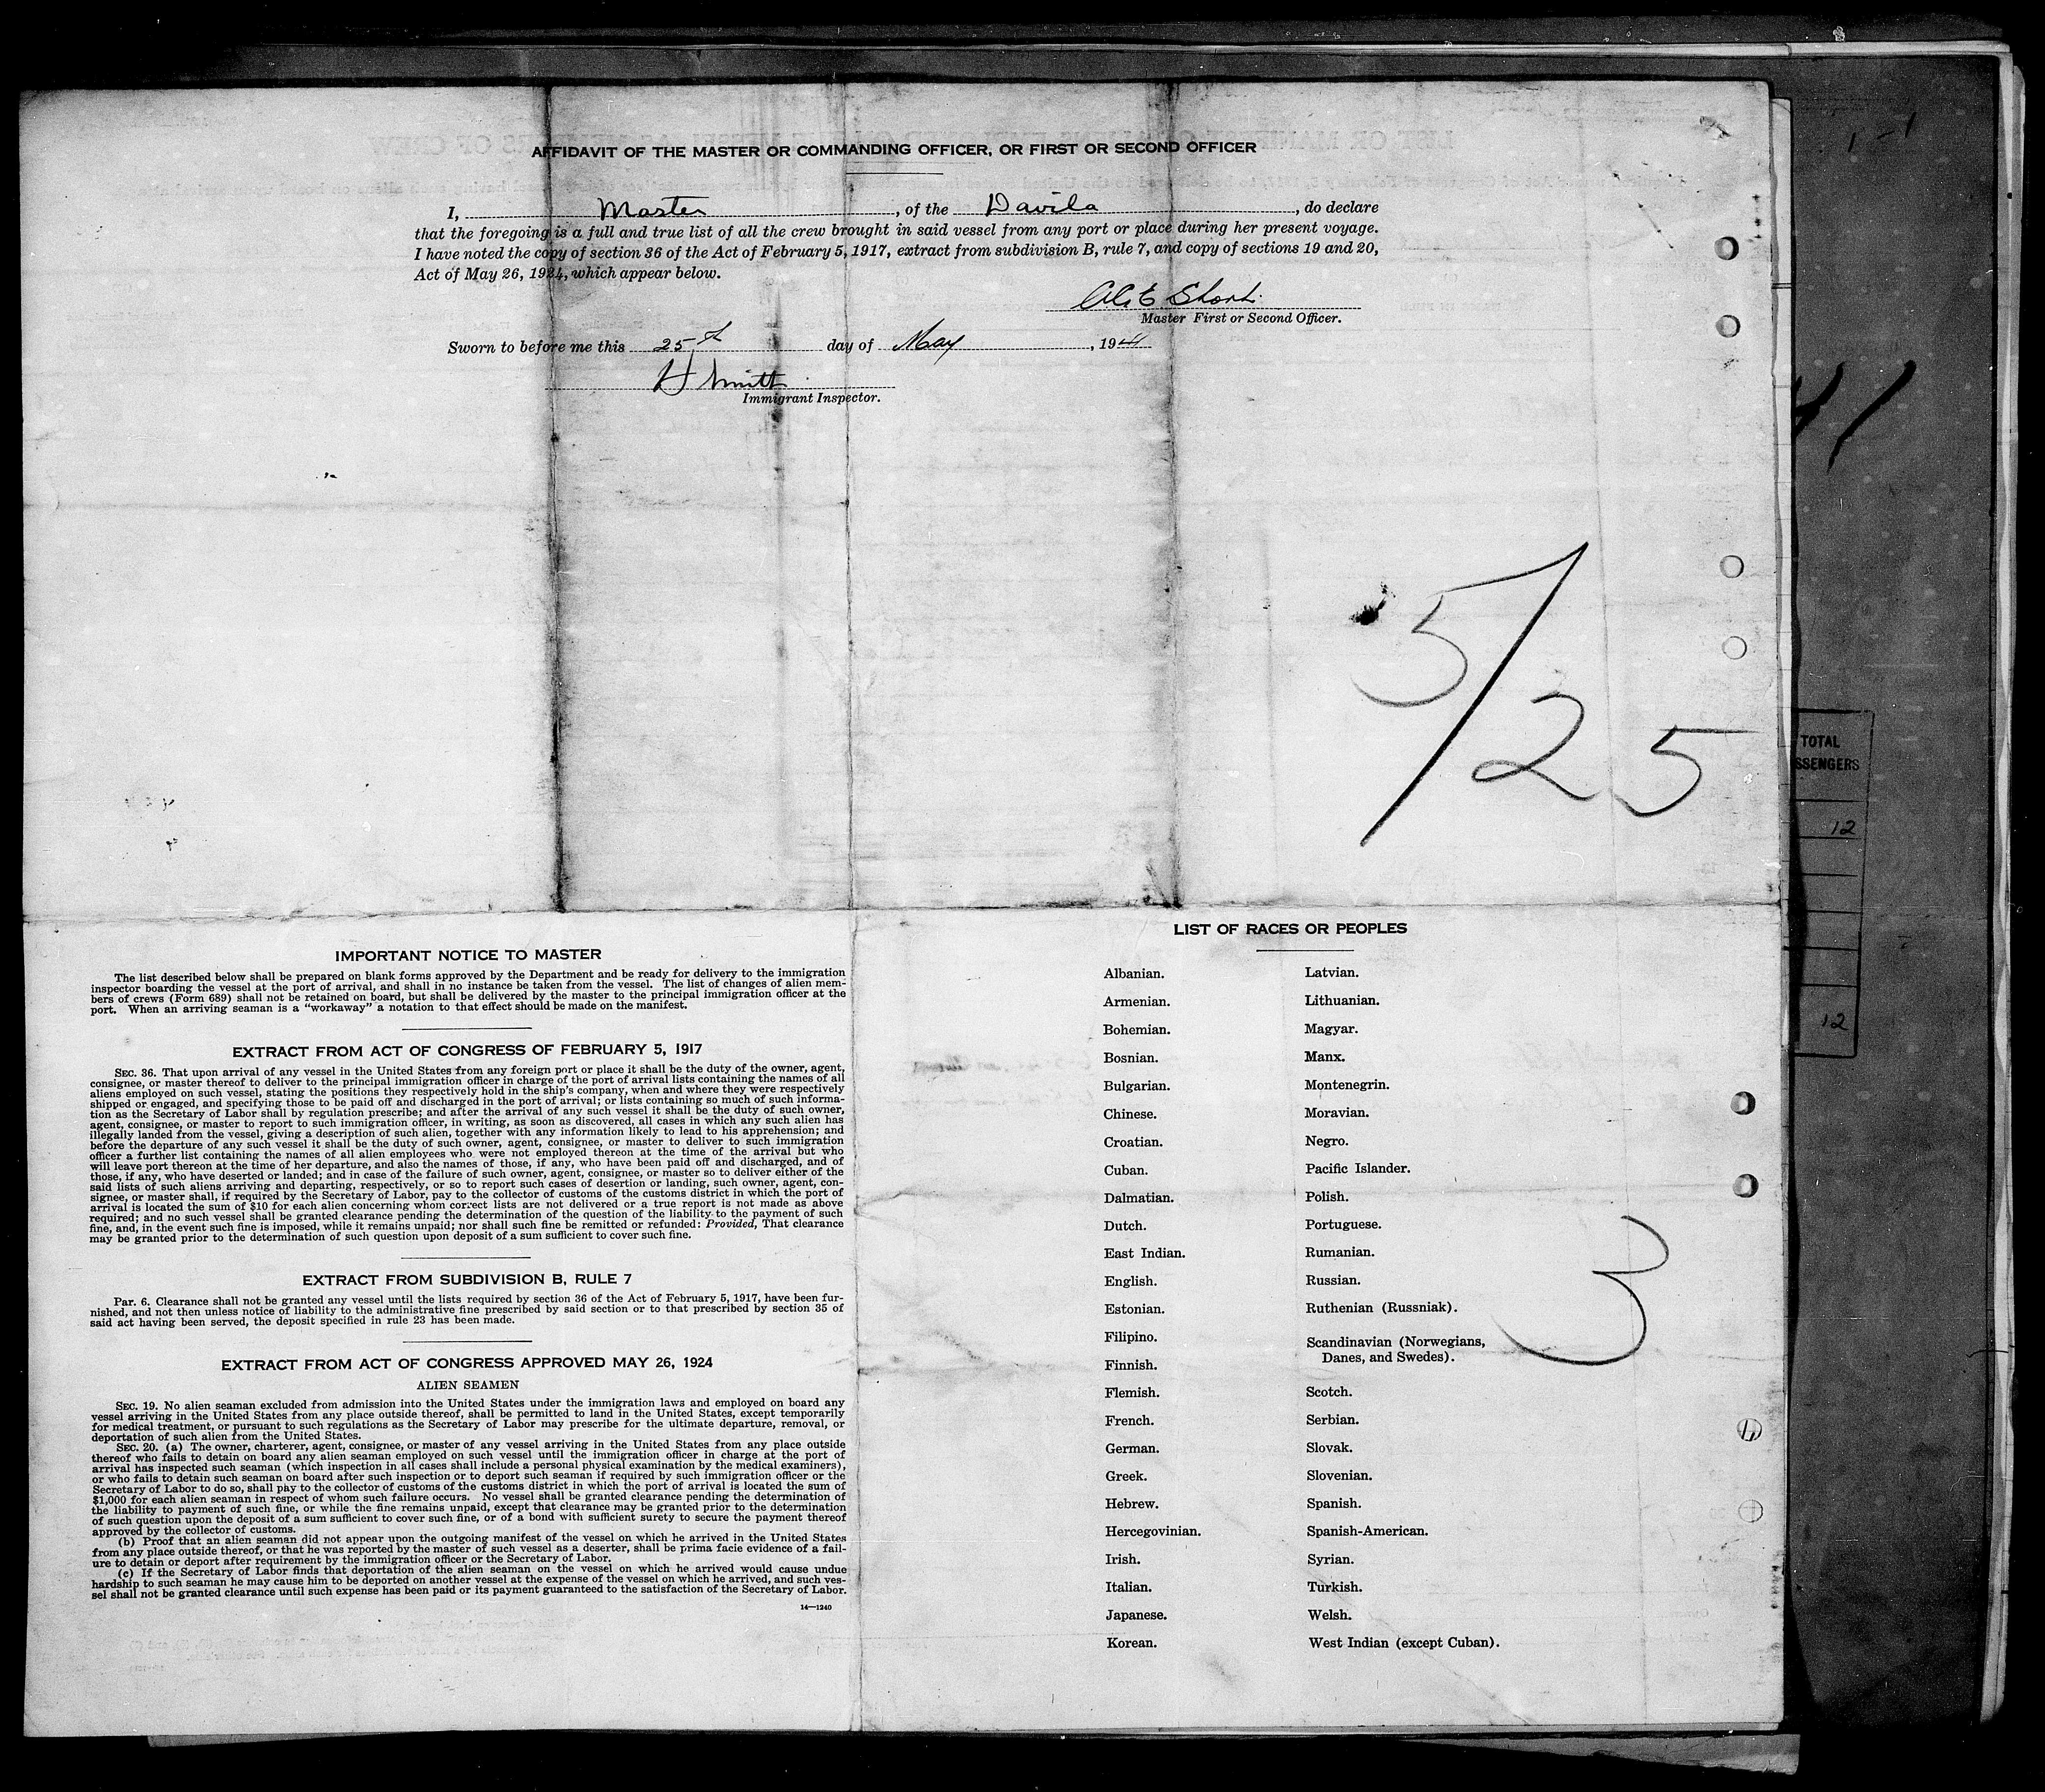 AFFIDAVIT OF THE MASTER OR COMMANDING OFFICER, OR FIRST OR SECOND OFFICER
I, Master, of the Davila, do declare
that the foregoing is a full and true list of all the crew brought in said vessel from any port or place during her present voyage.
I have noted the copy of section 36 of the Act of February 5, 1917, extract from subdivision B, rule 7, and copy of sections 19 and 20,
Act of May 26, 1924, which appear below.
Short
Master First or Second Officer.
Sworn to before me this 25th day of May, 1941
H Smith
Immigrant Inspector.
41
5/25
TOTAL
SSENGERS
12
12
IMPORTANT NOTICE TO MASTER
The list described below shall be prepared on blank forms approved by the Department and be ready for delivery to the immigration
inspector boarding the vessel at the port of arrival, and shall in no instance be taken from the vessel. The list of changes of alien mem-
bers of crews (Form 689) shall not be retained on board, but shall be delivered by the master to the principal immigration officer at the
port. When an arriving seaman is a "workaway" a notation to that effect should be made on the manifest.
EXTRACT FROM ACT OF CONGRESS OF FEBRUARY 5, 1917
SEC. 36. That upon arrival of any vessel in the United States from any foreign port or place it shall be the duty of the owner, agent,
consignee, or master thereof to deliver to the principal immigration officer in charge of the port of arrival lists containing the names of all
aliens employed on such vessel, stating the positions they respectively hold in the ship's company, when and where they were respectively
shipped or engaged, and specifying those to be paid off and discharged in the port of arrival; or lists containing so much of such informa-
tion as the Secretary of Labor shall by regulation prescribe; and after the arrival of any such vessel it shall be the duty of such owner,
agent, consignee, or master to report to such immigration officer, in writing, as soon as discovered, all cases in which any such alien has
illegally landed from the vessel, giving a description of such alien, together with any information likely to lead to his apprehension; and
before the departure of any such vessel it shall be the duty of such owner, agent, consignee, or master to deliver to such immigration
officer a further list containing the names of all alien employees who were not employed thereon at the time of the arrival but who
will leave port thereon at the time of her departure, and also the names of those, if any, who have been paid off and discharged, and of
those, if any, who have deserted or landed; and in case of the failure of such owner, agent, consignee, or master so to deliver either of the
said lists of such aliens arriving and departing, respectively, or so to report such cases of desertion or landing, such owner, agent, con-
signee, or master shall, if required by the Secretary of Labor, pay to the collector of customs of the customs district in which the port of
arrival is located the sum of $10 for each alien concerning whom correct lists are not delivered or a true report is not made as above
required; and no such vessel shall be granted clearance pending the determination of the question of the liability to the payment of such
fine, and, in the event such fine is imposed, while it remains unpaid; nor shall such fine be remitted or refunded: Provided, That clearance
may be granted prior to the determination of such question upon deposit of a sum sufficient to cover such fine.
EXTRACT FROM SUBDIVISION B, RULE 7
Par. 6. Clearance shall not be granted any vessel until the lists required by section 36 of the Act of February 5, 1917, have been fur-
nished, and not then unless notice of liability to the administrative fine prescribed by said section or to that prescribed by section 35 of
said act having been served, the deposit specified in rule 23 has been made.
EXTRACT FROM ACT OF CONGRESS APPROVED MAY 26, 1924
ALIEN SEAMEN
SEC. 19. No alien seaman excluded from admission into the United States under the immigration laws and employed on board any
vessel arriving in the United States from any place outside thereof, shall be permitted to land in the United States, except temporarily
for medical treatment, or pursuant to such regulations as the Secretary of Labor may prescribe for the ultimate departure, removal, or
deportation of such alien from the United States.
SEC. 20. (a) The owner, charterer, agent, consignee, or master of any vessel arriving in the United States from any place outside
thereof who fails to detain on board any alien seaman employed on such vessel until the immigration officer in charge at the port of
arrival has inspected such seaman (which inspection in all cases shall include a personal physical examination by the medical examiners),
or who fails to detain such seaman on board after such inspection or to deport such seaman if required by such immigration officer or the
Secretary of Labor to do so, shall pay to the collector of customs of the customs district in which the port of arrival is located the sum of
$1,000 for each alien seaman in respect of whom such failure occurs. No vessel shall be granted clearance pending the determination of
the liability to payment of such fine, or while the fine remains unpaid, except that clearance may be granted prior to the determination
of such question upon the deposit of a sum sufficient to cover such fine, or of a bond with sufficient surety to secure the payment thereof
approved by the collector of customs.
(b) Proof that an alien seaman did not appear upon the outgoing manifest of the vessel on which he arrived in the United States
from any place outside thereof, or that he was reported by the master of such vessel as a deserter, shall be prima facie evidence of a fail-
ure to detain or deport after requirement by the immigration officer or the Secretary of Labor.
(c) If the Secretary of Labor finds that deportation of the alien seaman on the vessel on which he arrived would cause undue
hardship to such seaman he may cause him to be deported on another vessel at the expense of the vessel on which he arrived, and such ves-
sel shall not be granted clearance until such expense has been paid or its payment guaranteed to the satisfaction of the Secretary of Labor.
14—1240
LIST OF RACES OR PEOPLES
Albanian.
Armenian.
Bohemian.
Bosnian.
Bulgarian.
Chinese.
Croatian.
Cuban.
Dalmatian.
Dutch.
East Indian.
English.
Estonian.
Filipino.
Finnish.
Flemish.
French.
German.
Greek.
Hebrew.
Hercegovinian.
Irish.
Italian.
Japanese.
Korean.
Latvian.
Lithuanian.
Magyar.
Manx.
Montenegrin.
Moravian.
Negro.
Pacific Islander.
Polish.
Portuguese.
Rumanian.
Russian.
Ruthenian (Russniak).
Scandinavian (Norwegians,
Danes, and Swedes).
Scotch.
Serbian.
Slovak.
Slovenian.
Spanish.
Spanish-American.
Syrian.
Turkish.
Welsh.
West Indian (except Cuban).
3